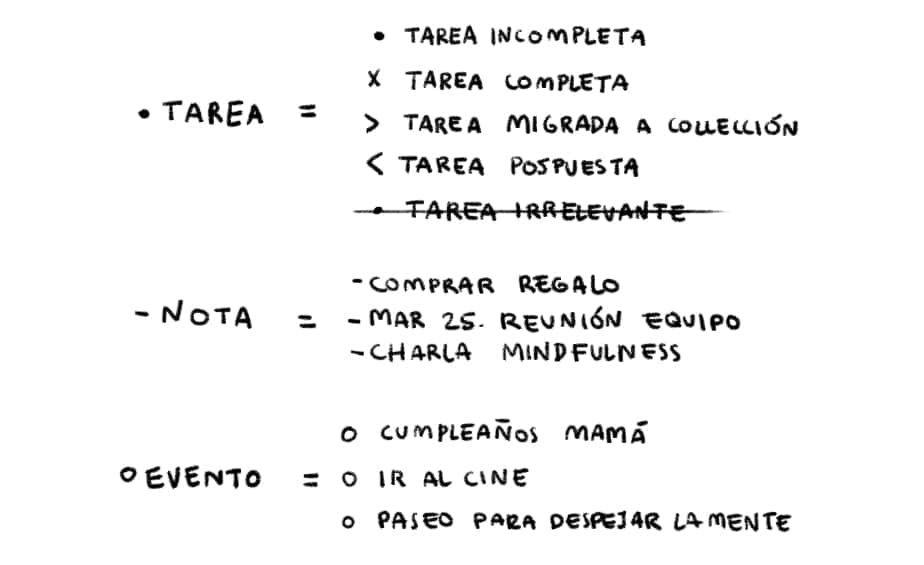 • TAREA INCOMPLETA
x TAREA COMPLETA
• TAREA = > TAREA MIGRADA A COLLECCIÓN
< TAREA POSPUESTA
• TAREA IRRELEVANTE
- COMPRAR REGALO
- NOTA = - MAR 25. REUNIÓN EQUIPO
- CHARLA MINDFULNESS
o CUMPLEAÑOS MAMÁ
o EVENTO = o IR AL CINE
o PASEO PARA DESPEJAR LA MENTE